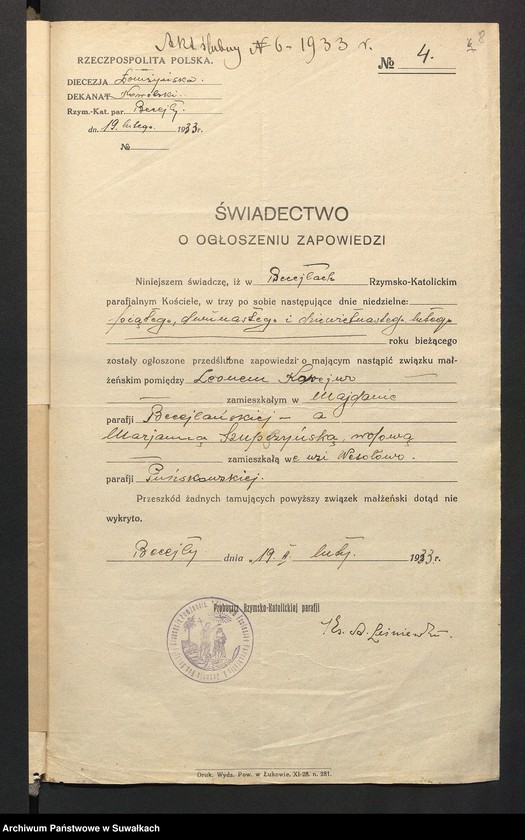 Akt ślubny № 6 - 1933 r.
№ 4.
8
RZECZPOSPOLITA POLSKA.
DIECEZJA Łomżyńska.
DEKANAT
Rzym.-Kat. par. Becejły
dn. 19. lutego. 1933 r.
№
ŚWIADECTWO
O OGŁOSZENIU ZAPOWIEDZI
Niniejszem świadczę, iż w Becejłach Rzymsko-Katolickim
parafjalnym Kościele, w trzy po sobie następujące dnie niedzielne:
piątego, dwunastego i dziewiętnastego lutego
roku bieżącego
zostały ogłoszone przedślubne zapowiedzi o mającym nastąpić związku mał-
żeńskim pomiędzy Leonem
zamieszkałym w Majdanie
parafji Becejlańskiej – a
Marjanną Szupszyńską, wdową
zamieszkałą we wsi Wesołowo.
parafji Puńskowskiej.
Przeszkód żadnych tamujących powyższy związek małżeński dotąd nie
wykryto.
Becejły dnia 19. II luty. 1933 r.
Proboszcz Rzymsko-Katolickiej parafji
Ks.
Druk. Wydz. Pow. w Łukowie, XI-28. n. 281.
Archiwum Państwowe w Suwałkach